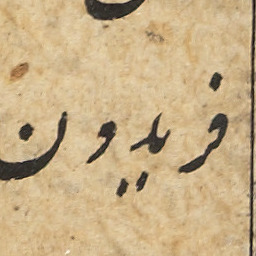 فریدون